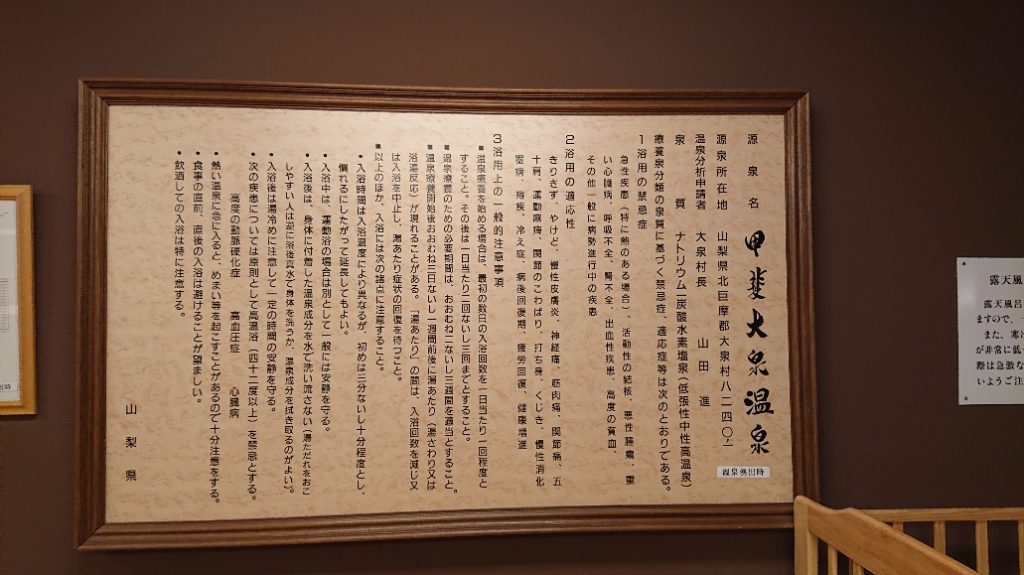 源泉名 甲斐大泉温泉
温泉湧出時
源泉所在地 山梨県北巨摩郡大泉村八二四〇-一
温泉分析申請者 大泉村長 山田 進
泉質 ナトリウム-炭酸水素塩泉(低張性中性高温泉)
療養泉分類の泉質に基づく禁忌症、適応症等は次のとおりである。
1 浴用の禁忌症
急性疾患(特に熱のある場合)、活動性の結核、悪性腫瘍、重
い心臓病、呼吸不全、腎不全、出血性疾患、高度の貧血、
その他一般に病勢進行中の疾患
2 浴用の適応性
きりきず、やけど、慢性皮膚炎、神経痛、筋肉痛、関節痛、五
十肩、運動麻痺、関節のこわばり、打ち身、くじき、慢性消化
器病、痔疾、冷え症、病後回復期、疲労回復、健康増進
3 浴用上の一般的注意事項
■温泉療養を始める場合は、最初の数日の入浴回数を一日当たり一回程度と
すること。その後は一日当たり二回ないし三回までとすること。
■温泉療養のための必要期間は、おおむね二ないし三週間を適当とすること。
■温泉療養開始後おおむね三日ないし一週間前後に湯あたり(湯さわり又は
浴湯反応)が現れることがある。「湯あたり」の間は、入浴回数を減じ又
は入浴を中止し、湯あたり症状の回復を待つこと。
■以上のほか、入浴には次の諸点に注意すること。
・入浴時間は入浴温度により異なるが、初めは三分ないし十分程度とし、
慣れるにしたがって延長してもよい。
・入浴中は、運動浴の場合は別として一般には安静を守る。
・入浴後は、身体に付着した温泉成分を水で洗い流さない(湯ただれをおこ
しやすい人は逆に浴後真水で身体を洗うか、温泉成分を拭き取るのがよい)。
・入浴後は湯冷めに注意して一定の時間の安静を守る。
・次の疾患については原則として高温浴(四十二度以上)を禁忌とする。
高度の動脈硬化症 高血圧症 心臓病
・熱い温泉に急に入ると、めまい等を起こすことがあるので十分注意をする。
・食事の直前、直後の入浴は避けることが望ましい。
・飲酒しての入浴は特に注意する。
山梨県
露天風
露天風呂
ますので、
また、寒
が非常に低
際は急激な
いようご注
出時